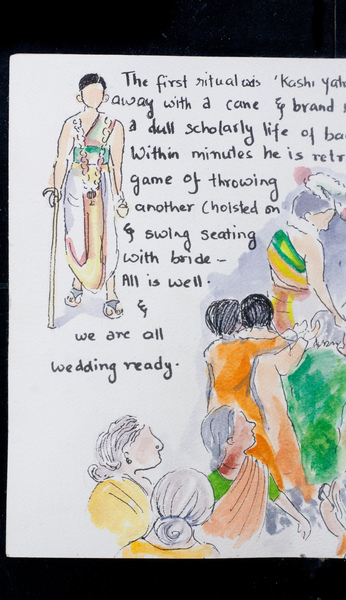 The first ritual was 'Kashi Yat
away with a cane & brand
a dull scholarly life of ba
Within minutes he is retr
game of throwing
another (hoisted on
& swing seating
with bride -
All is well.
&
we are all
wedding ready.